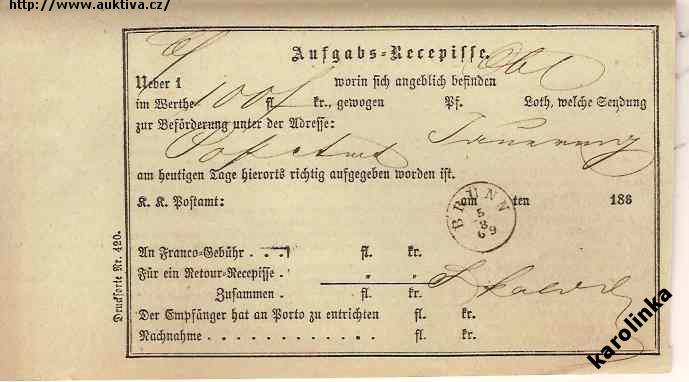 http://www.auktiva.cz/
Aufgabs-Recepisse.
Ueber 1 worin sich angeblich befinden
im Werthe 100 f fl. kr., gewogen Pf. Loth, welche Sendung
zur Beförderung unter der Adresse:
am heutigen Tage hierorts richtig aufgegeben worden ist.
K. K. Postamt: am ten 186
BRÜNN
5
8
69
An Franco-Gebühr . . . fl. kr.
Für ein Retour-Recepisse . " "
Zusammen . fl. kr.
Der Empfänger hat an Porto zu entrichten fl. kr.
Nachnahme . . . . . . . . . . . . fl. kr.
Drucksorte Nr. 420.
karolinka